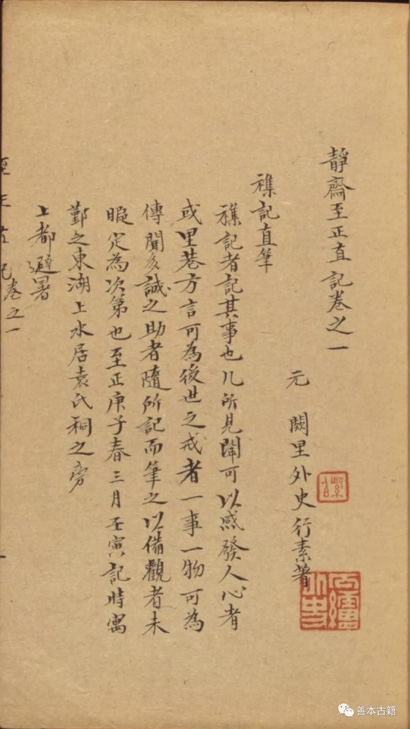 靜齋至正直記卷之一
元 闕里外史行素著
襍記直筆
襍記者記其事也凡所見聞可以感發人心者
或里巷方言可為後世之戒者一事一物可為
傳聞多識之助者隨所記而筆之以備觀者未
暇定為次第也至正庚子春三月壬寅記時寓
鄞之東湖上水居袁氏祠之旁
上都避暑
善本古籍